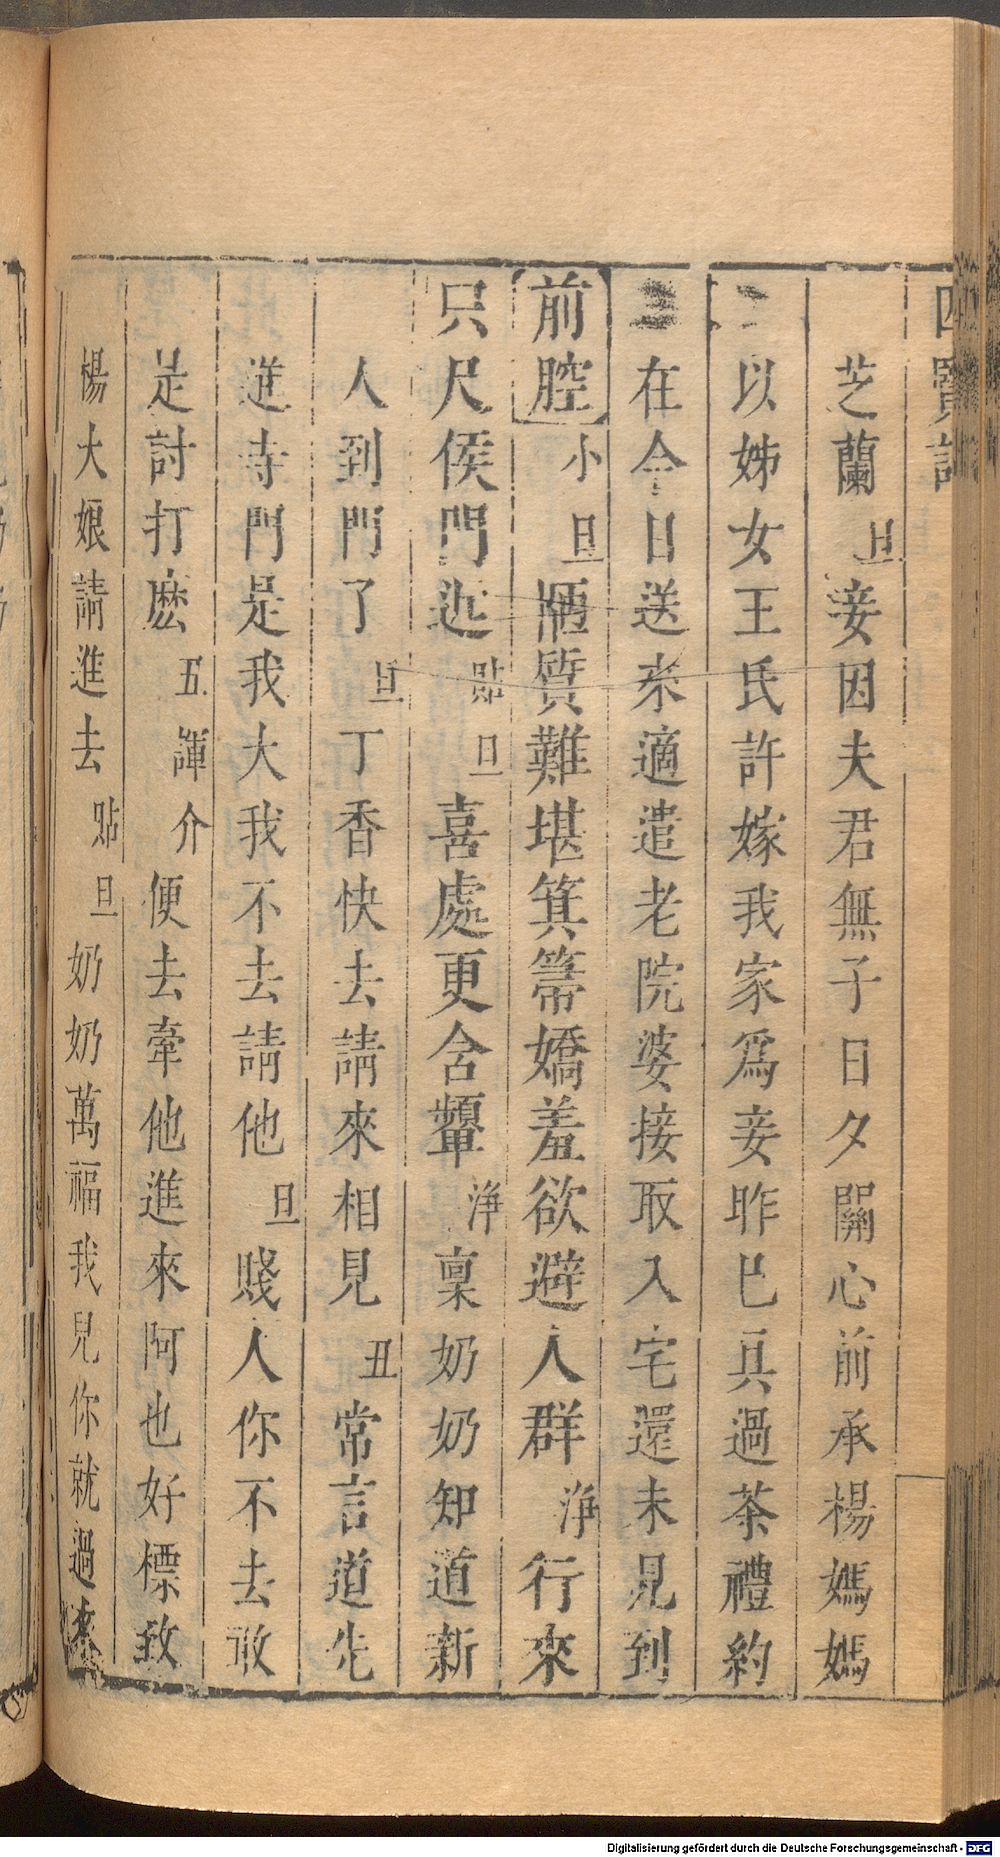 四賢記
芝蘭旦妾因夫君無子日夕關心前承楊媽媽
以姊女王氏許嫁我家爲妾昨已兵過茶禮約
在今日送來適遣老院婆接取入宅還未見到
前腔小旦陋質難堪箕箒嬌羞欲避人群淨行來
只尺侯門近貼旦喜處更含顰淨稟奶奶知道新
人到門了旦丁香快去請來相見丑常言道先
進寺門是我大我不去請他旦賤人你不去敢
是討打麽五諢介便去牽他進來阿也好標致
楊大娘請進去貼旦奶奶萬福我兒你就過來
Digitalisierung gefördert durch die Deutsche Forschungsgemeinschaft - DFG